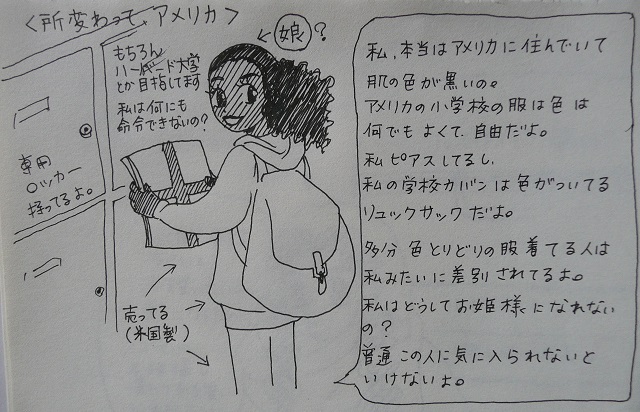 ＜所変わって、アメリカ＞
娘？
もちろん
ハーバード大学
とか目指してます
私は何にも
命分できないの？
専用
ロッカー
持ってるよ。
売ってる
(米国製)
私、本当はアメリカに住んでいて
肌の色が黒いの。
アメリカの小学校の服は色は
何でもよくて、自由だよ。
私ピアスしてるし、
私の学校カバンは色がついてる
リュックサックだよ。
多分色とりどりの服着てる人は
私みたいに差別されてるよ。
私はどうしてお姫様になれない
の？
普通この人に気に入られないと
いけないよ。